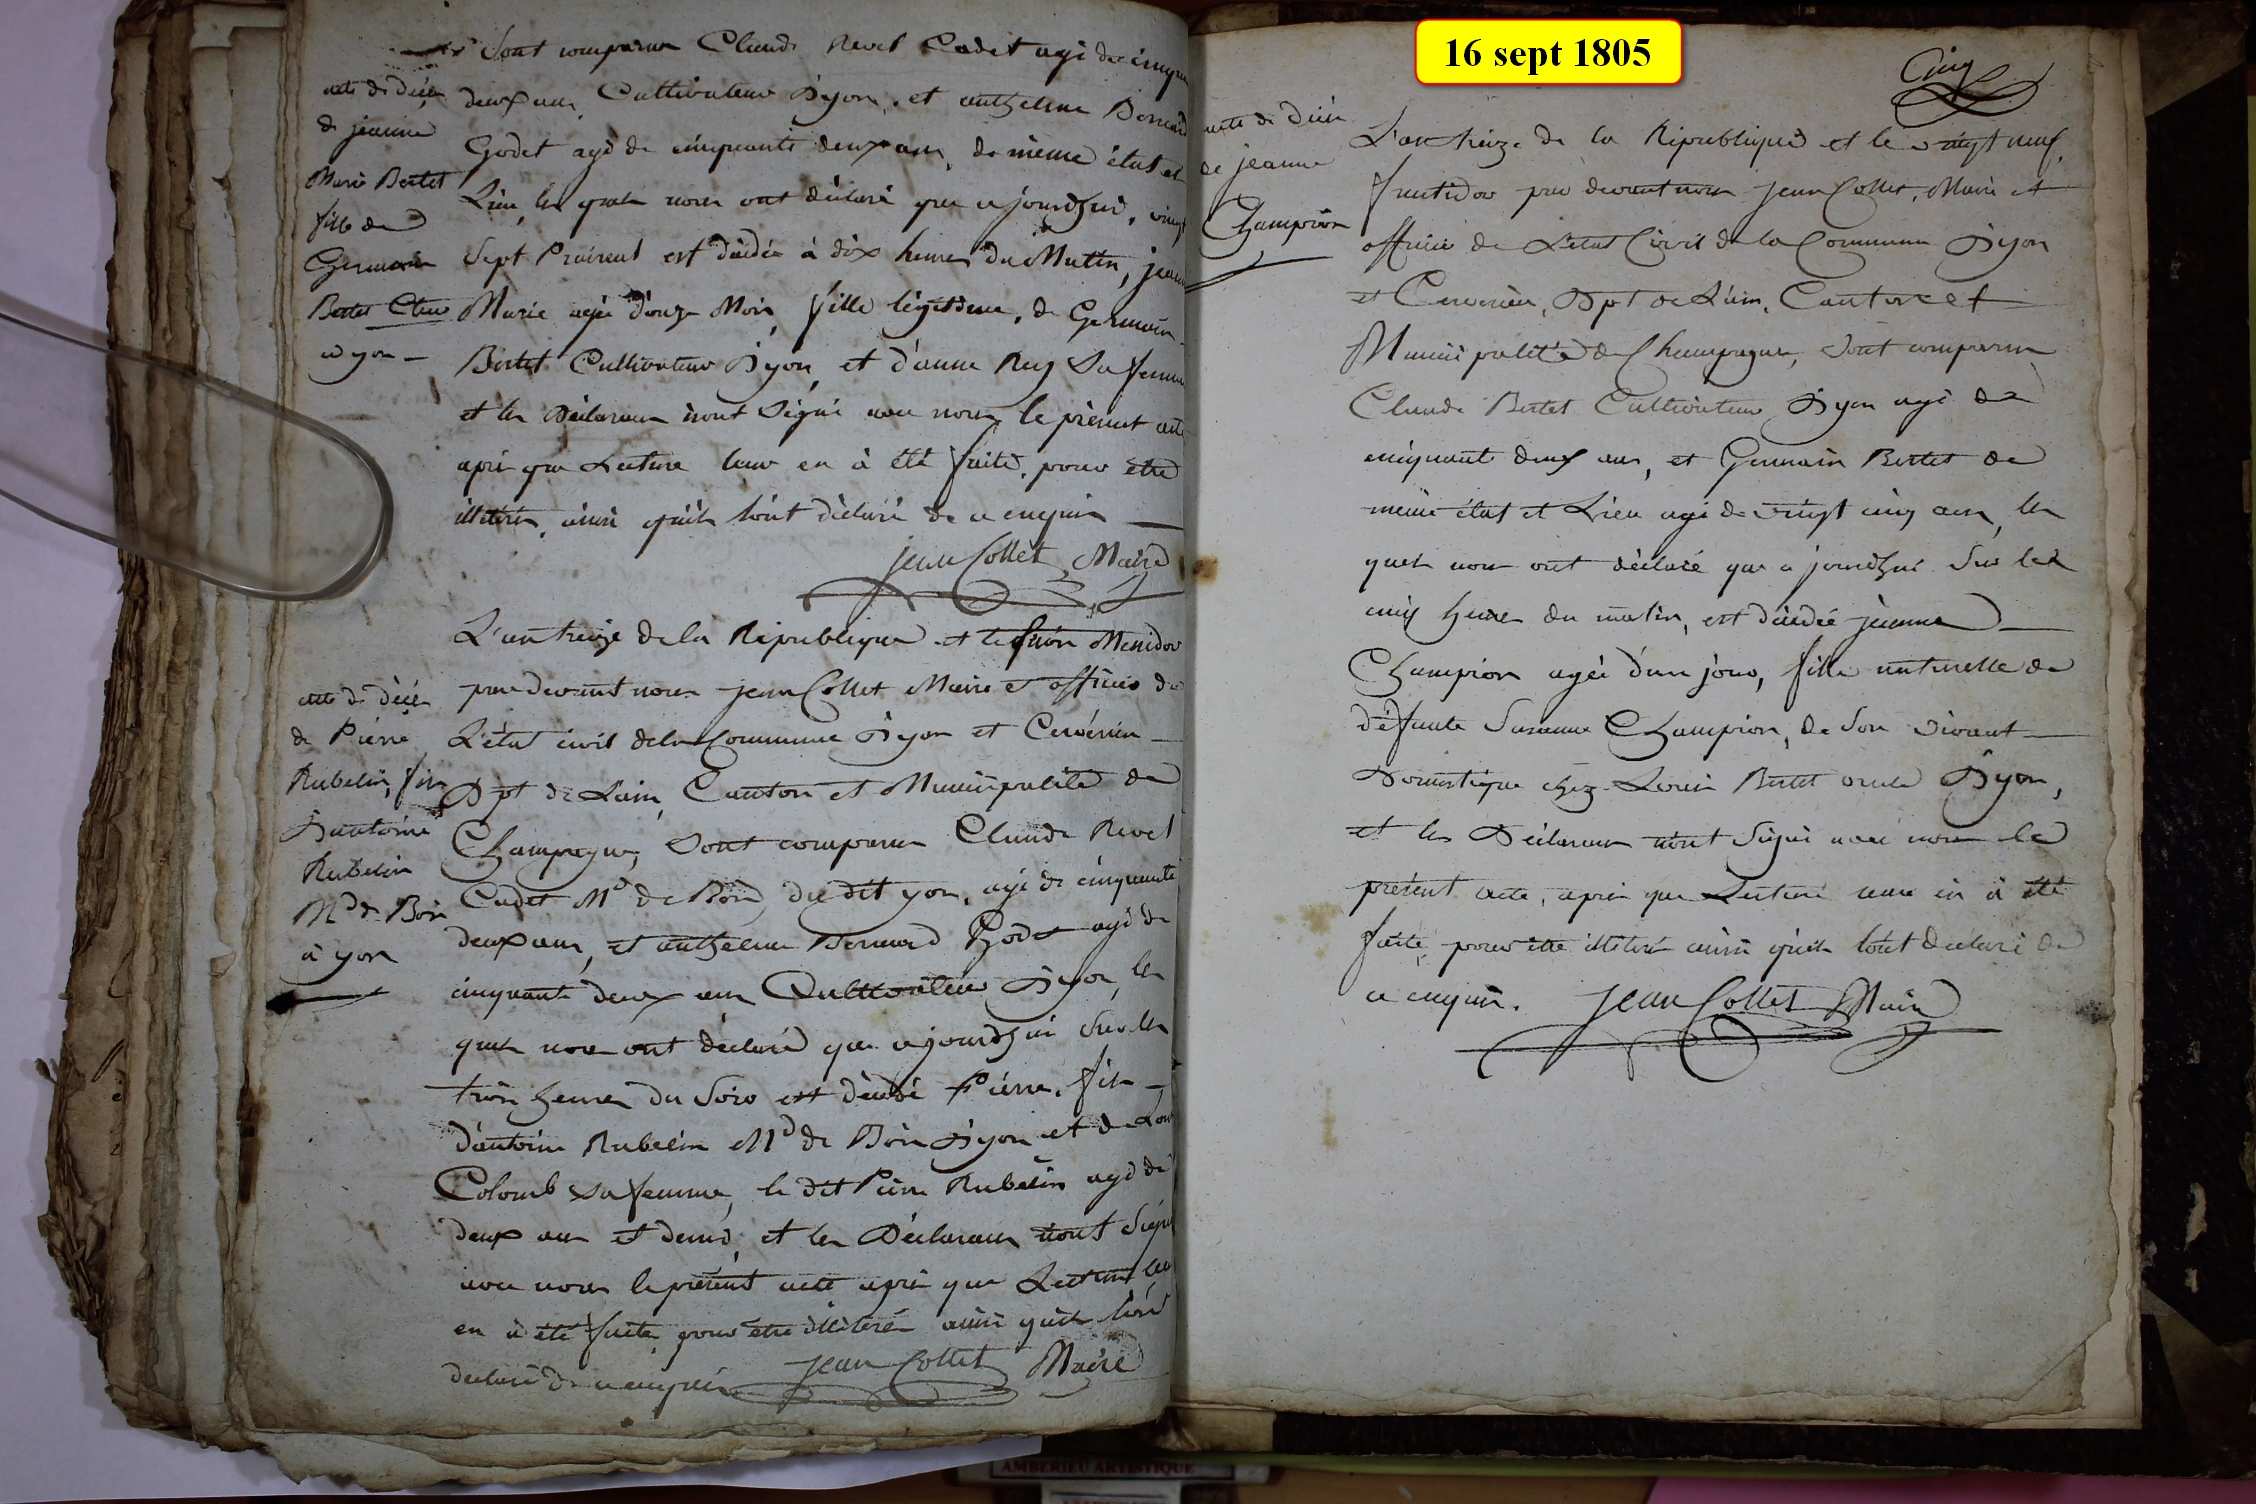 Sont comparus Claude Revel Cadet agé de cinqu
deux ans, Cultivateur Dyon, et anthelme Bernard
Godet agé de cinquante deux ans, de même état et
Lieu, les quels nous ont déclaré que ajourdhui, vingt
Sept Prairial est décédée à dix heures du Matin, jeanne
Marie agée d'onze Mois, fille légitime, de Germain
Bertet Cultivateur Dyon, et d'anne Rey Sa femme
et les Déclarans n'ont Signé avec nous le présent acte
après que Lecture leur en à été faite, pour être
illiterés, ainsi quils l'ont déclaré de ce enquis
Jean Collet Maire
acte de décès
de jeanne
Marie Bertet
fille de
Germain
Bertet Cteur
a yon
L'an treize de la République et le six Messidor
par devant nous Jean Collet Maire et officier de
L'état civil de la Commune Dyon et Cerveirieu
Dpt de L'ain, Canton et Municipalité de
Champagne, Sont comparus Claude Revel
Cadet Md de Bois, du dit yon, agé de cinquante
deux ans, et anthelme Bernard Godet agé de
cinquante deux ans Cultivateur Dyon, les
quels nous ont déclaré que ajourdhui Sur les
trois heures du Soir est décédé Pierre, fils
d'antoine Rubelin Md de Bois Dyon et de Louise
Colomb Sa femme, le dit Pierre Rubelin agé de
deux ans et demi, et les Déclarans n'ont Signé
avec nous le présent acte après que Lecture leur
en à été faite, pour être illiterés ainsi quils l'ont
declaré de ce enquis Jean Collet Maire
acte de décès
de Pierre
Rubelin, fils
Dantoine
Rubelin
Md de Bois
à yon
16 sept 1805
Cinq
acte de décès
de jeanne
Champion
L'an treize de la République et le vingt neuf
fructidor par devant nous Jean Collet, Maire et
officier de L'état Civil de la Commune Dyon
et Cerveirieu, Dpt de L'ain, Canton et
Municipalité de Champagne, Sont comparus
Claude Bertet Cultivateur Dyon agé de
cinquante deux ans, et Germain Bertet de
même état et Lieu agé de vingt cinq ans, les
quels nous ont déclaré que ajourdhui Sur les
cinq heures du matin, est décédée jeanne
Champion agée d'un jour, fille naturelle de
défunte Suzanne Champion, de Son vivant
Domestique chez Louis Bertet Dyon,
et les Déclarans n'ont Signé avec nous le
présent acte, après que Lecture leur en à été
faite, pour être illiteré ainsi quils l'ont declaré de
ce enquis. Jean Collet Maire
AMBERIEU ARTISTIQUE